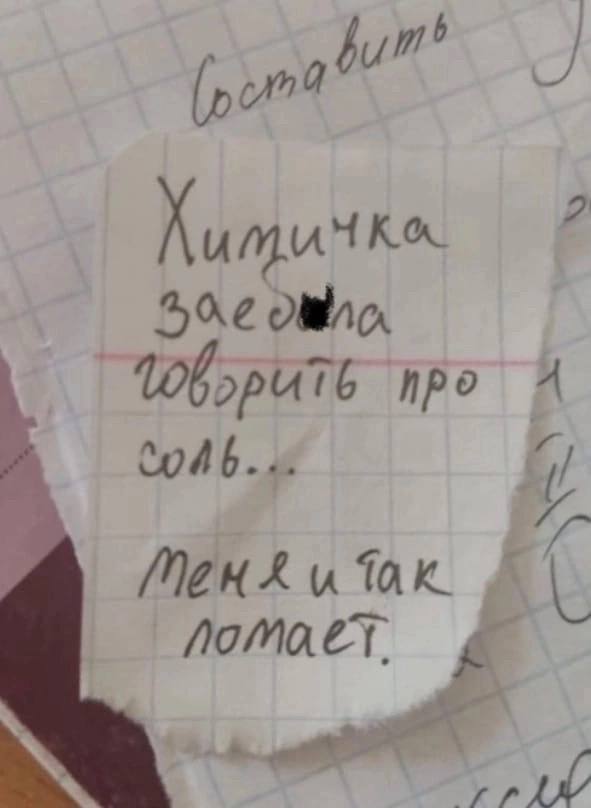 Составить
Химичка
заеб ла
говорить про
соль...
меня и так
ломает.